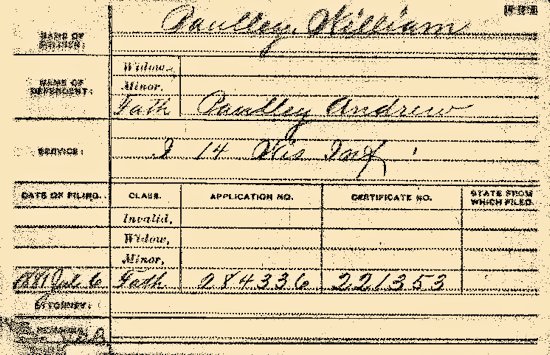 NAME OF SOLDIER: Paulley, William
NAME OF DEPENDENT: Widow, Minor, Fath Paulley Andrew
SERVICE: I 14 Wis Inf
DATE OF FILING. CLASS. APPLICATION NO. CERTIFICATE NO. STATE FROM WHICH FILED.
Invalid,
Widow,
Minor,
1881 Jul 6 Fath 284336 221353
ATTORNEY:
REMARKS: